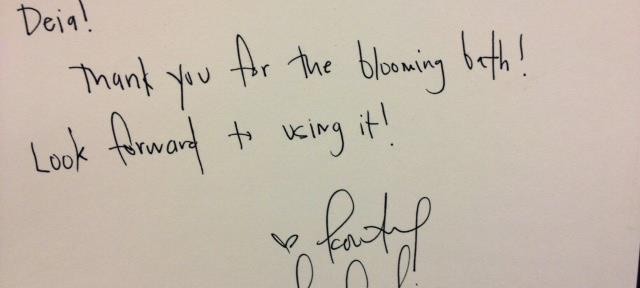 Deia!
Thank you for the blooming bath!
Look forward to using it!